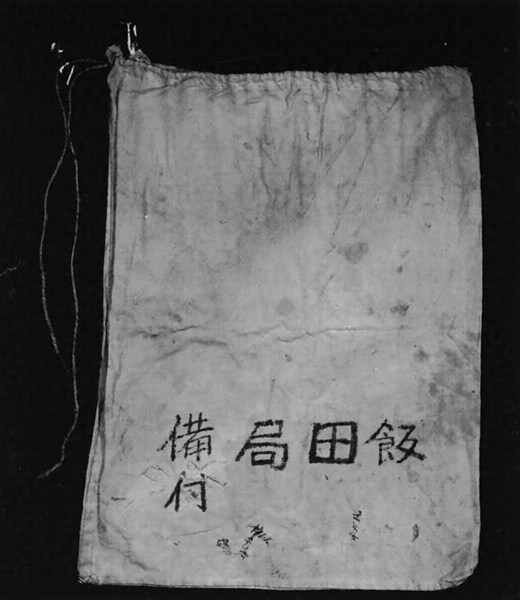 飯田局
備付